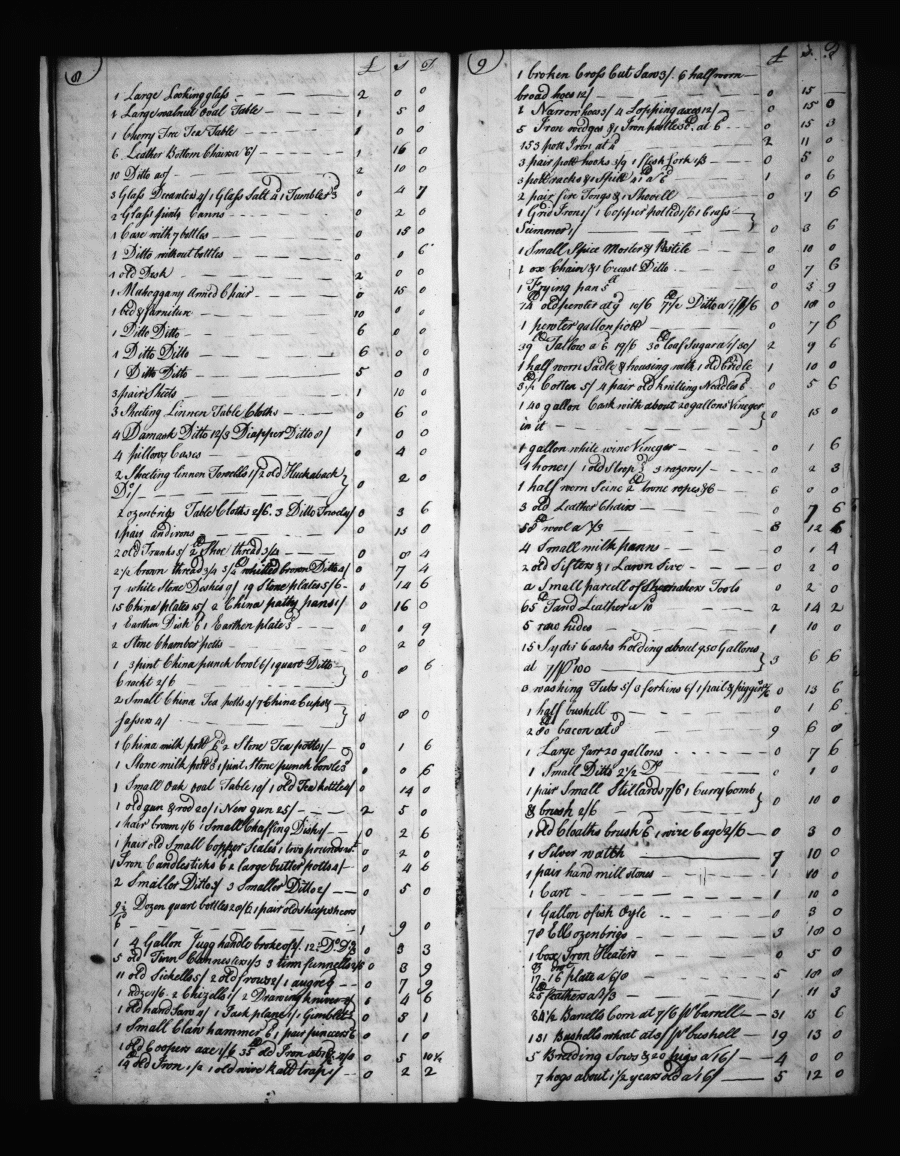 8
£ s d
1 Large Looking glass 2 0 0
1 Large walnut oval Table 1 5 0
1 Cherry Tree Tea Table 1 0 0
6 Leather Bottom Chairs a 6/ 1 16 0
10 Ditto a 5/ 2 10 0
3 Glass Decanters 4/ 1 Glass Salt 4 1 Tumbler 3 0 4 7
2 Glass pints Canns 0 2 0
1 Case with 7 bottles 0 15 0
1 Ditto without bottles 0 0 6
1 old Desk 2 0 0
1 Mahoggany Armed Chair 0 15 0
1 bed & furniture 10 0 0
1 Ditto Ditto 6 0 0
1 Ditto Ditto 6 0 0
1 Ditto Ditto 5 0 0
3 pair Sheets 1 10 0
3 Sheeting Linnen Table Cloths 0 6 0
4 Damask Ditto 12/ 3 Diapper Ditto 8/ 1 0 0
4 pillow Cases 0 4 0
2 Sheeting linnen Towells 1/ 2 old Huckaback
Do 1/ 0 2 0
2 ozenbrigs Table Cloths 2/6. 3 Ditto Towels 1/ 0 3 6
1 pair andirons 0 15 0
2 old Trunks 5/ 2 Shoe thread 3/4 0 8 4
2½ brown thread 3/4 3½ whited brown Ditto 4/ 0 7 4
7 white Stone Deshes 9/ 19 Stone plates 5/6 0 14 6
15 China plates 15/ 2 China patty pans 1/ 0 16 0
1 Earthen Dish 6 1 Earthen plate 3 0 0 9
2 Stone Chamber potts 0 2 0
1 3 pint China punch bowl 6/ 1 quart Ditto
Crackt 2/6 0 8 6
2 Small China Tea potts 4/ 7 China Cups &
Sassers 4/ 0 8 0
1 China milk pott 6 2 Stone Tea potts 1/ 0 1 6
1 Stone milk pott 3 1 pint Stone punch bowle 3 0 0 6
1 Small Oak oval Table 10/ 1 old Tea kettle 4/ 0 14 0
1 old gun & rod 20/ 1 New gun 25/ 2 5 0
1 hair broom 1/6 1 Small Chaffing Dish 1/ 0 2 6
1 pair old Small Copper Scales 1 two pound wt 0 2 0
Iron Candlesticks 6 2 large butter potts 4/ 0 4 6
2 Smaller Ditto 3/ 3 Smaller Ditto 2/ 0 5 0
9½ Dozen quart bottles 20/6 1 pair old sheep sheers
6 1 9 0
1 4 Gallon Jugg handle broke 0 3 3
5 old Tinn Cannesters 1/3 3 tinn funnells 2/6 0 3 9
11 old Sickells 5/ 2 old frows 2/ 1 augre 9 0 7 9
1 adze 1/6 2 Chizells 1/ 2 Drawing knives 2/ 0 4 6
1 old hand Saw 2/ 1 Jack plane 1/ 1 Gimblet 0 5 1
1 Small Claw hammer 6 1 pair pinceers 6 0 1 0
1 old Coopers axe 1/6 35 old Iron 0 5 10½
14 old Iron 1/2 1 old wire ratt trap 1/ 0 2 2
9
£ s d
1 broken Cross Cut Saw 3/. 6 half worn
broad hoes 12/ 0 15
2 Narrow hoes 3/ 4 Lopping axes 12/ 0 15 0
5 Iron wedges & 1 Iron pastle at 6 0 15 3
153 pott Iron at 4 2 11 0
3 pair pott hooks 3/9 1 flesh fork 1/3 0 5 0
3 pott racks & 1 Spitt 41 a 6 1 0 6
2 pair fire Tongs & 1 Shovell 0 7 6
1 Grid Iron 1/ 1 Copper pott lid 1/6 1 brass
Scimmer 1/ 0 3 6
1 Small Spice Morter & Pestile 0 10 0
1 ox Chain & 1 breast Ditto 0 7 6
1 Frying pan 5 0 3 9
14 old pewter at 9 10/6 7½ Ditto a 1/ 7/6 0 18 0
1 pewter gallon pott 0 7 6
39 Tallow a 6 19/6 30 loaf Sugar a 1/ 30/ 2 9 6
1 half worn Sadle & housing with 1 old bridle 1 10 0
3½ Cotton 5/ 4 pair old knitting Needles 6 0 5 6
1 40 gallon Cask with about 20 gallons Vineger
in it 0 15 0
1 gallon white wine Vineger 0 1 6
1 hone 1/ 1 old Strop 3 5 razors 1/ 0 2 3
1 half worn Seine & 2 bone ropes & 6 6 0 0
3 old Leather Chairs 0 7 6
58 wool a 1/3 3 12 6
4 Small milk panns 0 1 4
2 old Sifters & 1 Lawn Sive 0 2 0
a Small parcell of Shoemakers Tools 0 2 0
65 Tand Leather a 10 2 14 2
5 raw hides 1 10 0
15 Syder Casks holding about 950 Gallons
at 7/ P 100 3 6 6
3 washing Tubs 5/ 3 firkins 6/ 1 pail & piggin 2/6 0 13 6
1 half bushell 0 1 6
280 bacon at 8 9 6 8
1 Large Jarr 20 gallons 0 7 6
1 Small Ditto 2½ Do 0 1 0
1 pair Small Stillards 7/6 1 Curry Comb
& brush 2/6 0 10 0
1 old Cloaths brush 6 1 wire Cage 2/6 0 3 0
1 Silver watch 7 10 0
1 pair hand mill stones 1 10 0
1 Cart 1 10 0
1 Gallon of ish Oyle 0 3 0
78 Ells ozenbrigs 3 18 0
1 box Iron Heaters 0 5 0
17 16 plate a 6/8 5 18 8
25 feathers a 1/3 1 11 3
84½ Barells Corn at 7/6 P barrell 31 13 6
131 Bushells wheat at 3/ P bushell 19 13 0
5 Breeding Sows & 20 pigs a 16/ 4 0 0
7 hogs about 1½ years old a 16/ 5 12 0